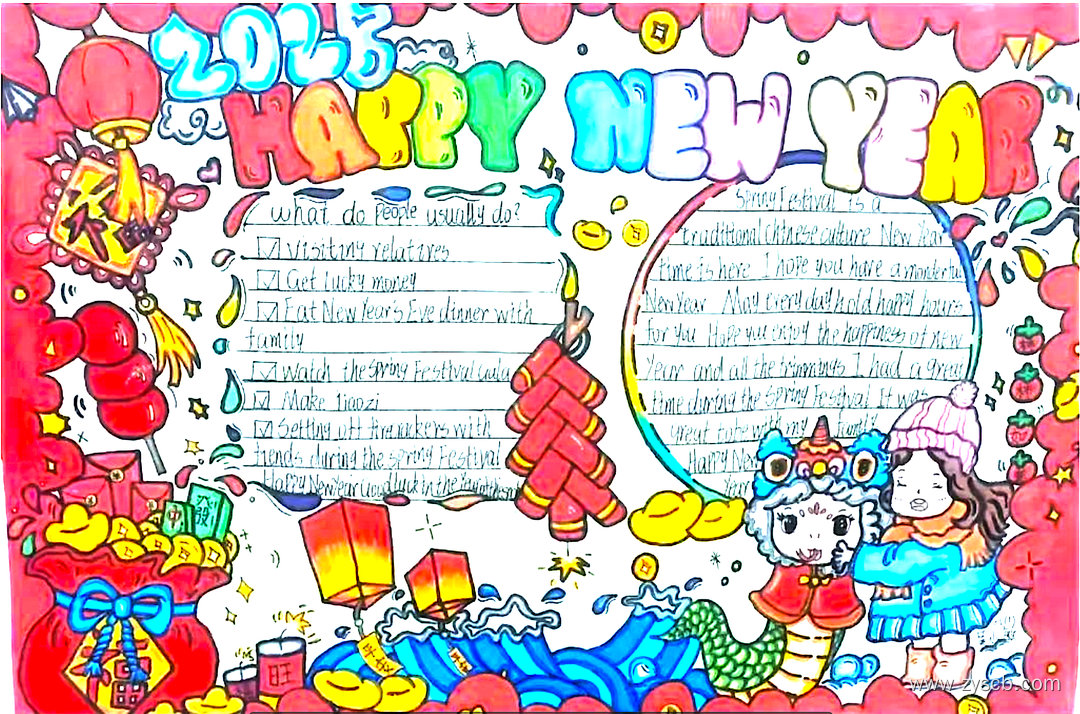 2025
HAPPY NEW YEAR
What do people usually do?
Visiting relatives
Get lucky money
Eat New Year's Eve dinner with
family
Watch the Spring Festival Gala
Make Jiaozi
Setting off firecrackers with
friends during the Spring Festival
Happy New Year Good luck in the
Spring Festival is a
traditional Chinese culture New Year
time is here I hope you have a wonderful
New Year May every day hold happy hours
for you Hope you enjoy the happiness of new
Year and all the trimmings I had a great
time during the Spring Festival It was
great with my family
Happy New
Year
中
發
旺
www.zyscb.com